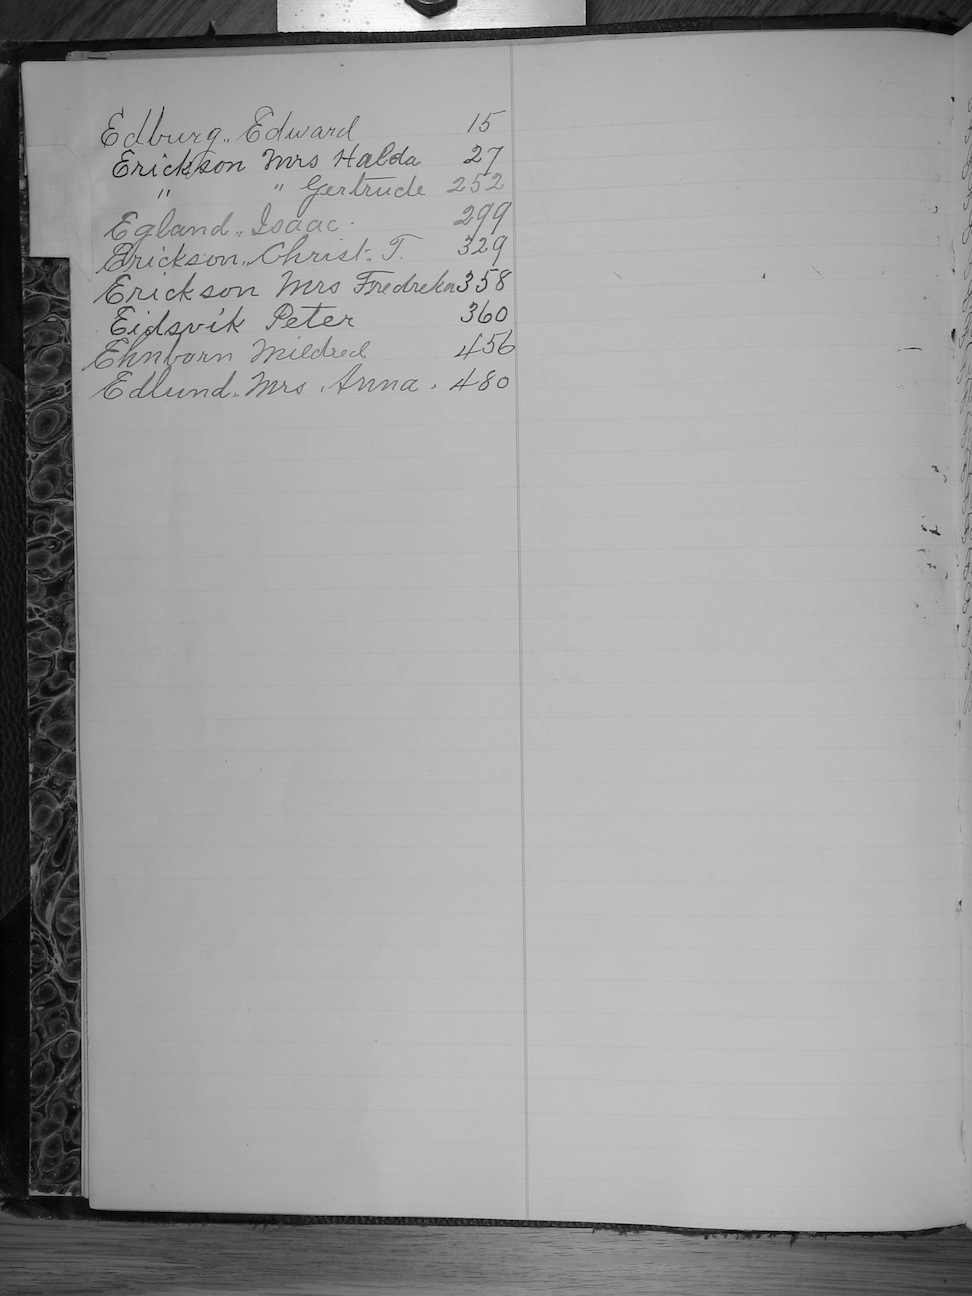 Edburg, Edward 15
Erickson Mrs Halda 27
" " Gertrude 252
Egland, Isaac 299
Erickson, Christ. T. 329
Erickson Mrs Fredreka 358
Eidsvik Peter 360
Ehnborn Mildred 456
Edlund, Mrs. Anna. 480